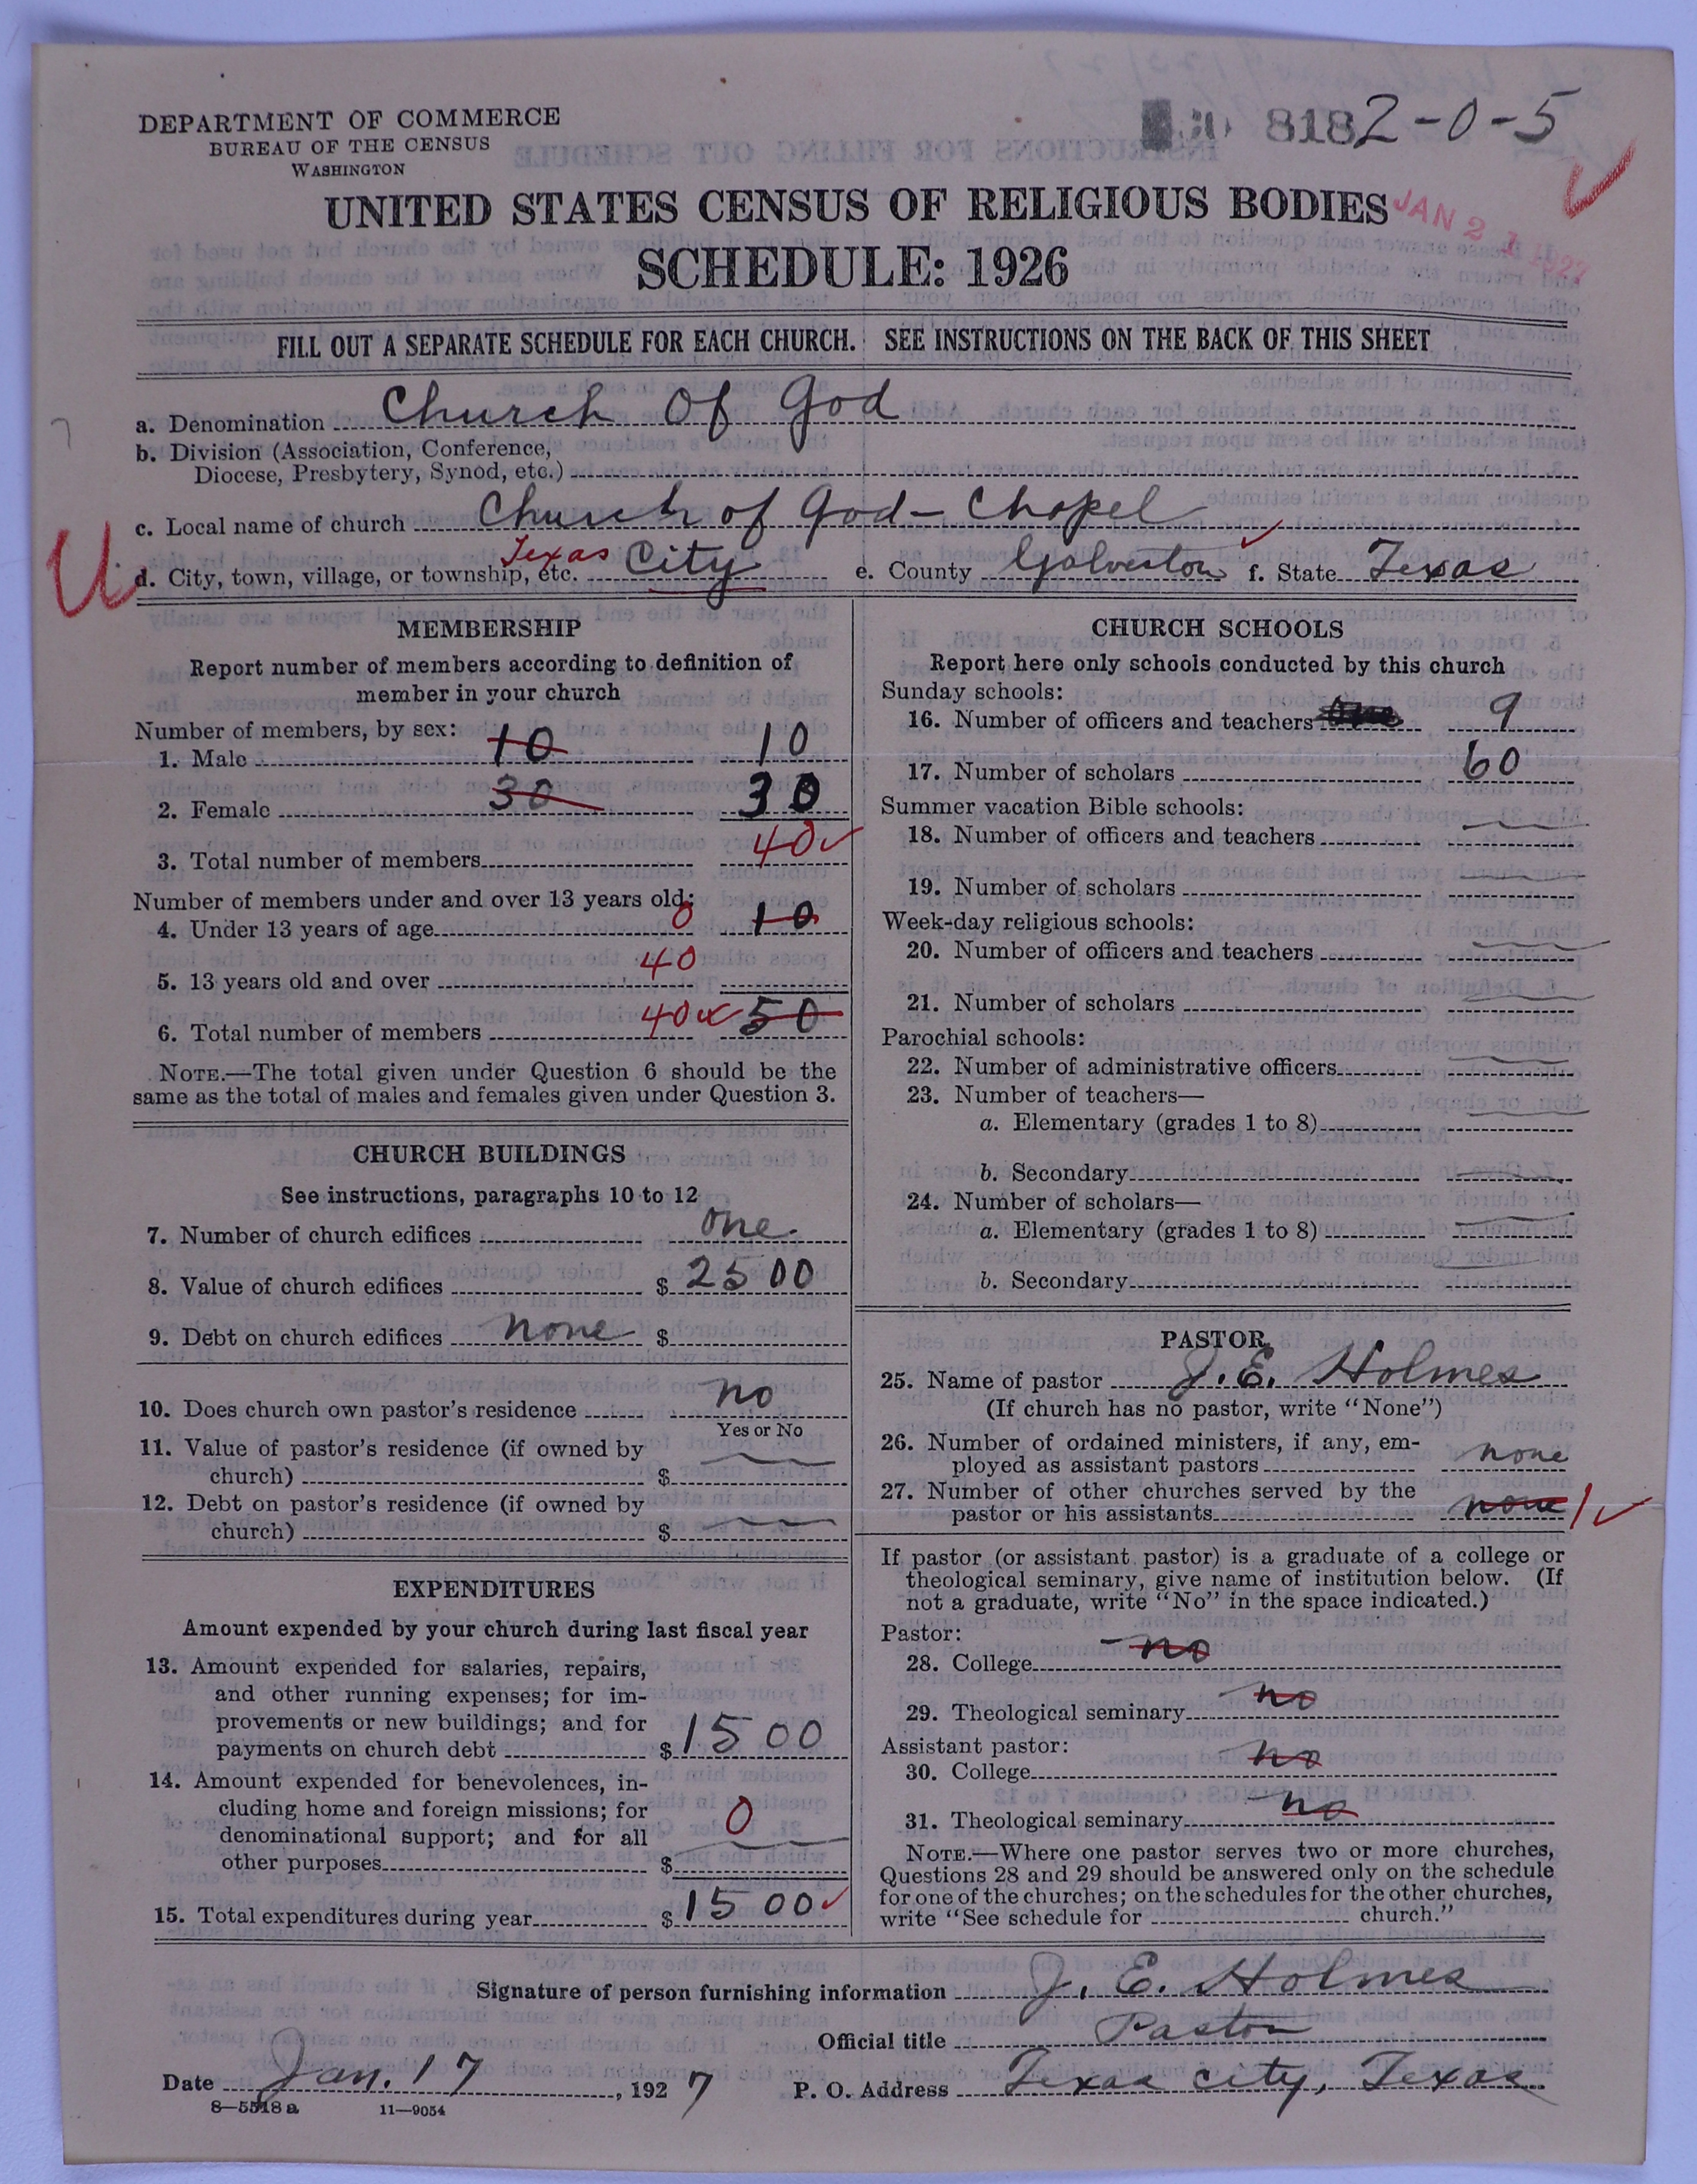 DEPARTMENT OF COMMERCE
BUREAU OF THE CENSUS
WASHINGTON
8182-0-5
UNITED STATES CENSUS OF RELIGIOUS BODIES
JAN 21 1927
SCHEDULE: 1926
FILL OUT A SEPARATE SCHEDULE FOR EACH CHURCH. SEE INSTRUCTIONS ON THE BACK OF THIS SHEET
a. Denomination Church Of God
b. Division (Association, Conference,
Diocese, Presbytery, Synod, etc.)
c. Local name of church Church of God - Chapel
d. City, town, village, or township, etc. Texas City e. County Galveston f. State Texas
MEMBERSHIP
Report number of members according to definition of
member in your church
Number of members, by sex:
1. Male 10 10
2. Female 30 30
3. Total number of members 40
Number of members under and over 13 years old:
4. Under 13 years of age 0 10
5. 13 years old and over 40
6. Total number of members 40 50
NOTE.—The total given under Question 6 should be the
same as the total of males and females given under Question 3.
CHURCH BUILDINGS
See instructions, paragraphs 10 to 12
7. Number of church edifices one
8. Value of church edifices $ 2500
9. Debt on church edifices none $
10. Does church own pastor's residence no
Yes or No
11. Value of pastor's residence (if owned by
church) $
12. Debt on pastor's residence (if owned by
church) $
EXPENDITURES
Amount expended by your church during last fiscal year
13. Amount expended for salaries, repairs,
and other running expenses; for im-
provements or new buildings; and for
payments on church debt $ 1500
14. Amount expended for benevolences, in-
cluding home and foreign missions; for
denominational support; and for all
other purposes $ 0
15. Total expenditures during year $ 1500
CHURCH SCHOOLS
Report here only schools conducted by this church
Sunday schools:
16. Number of officers and teachers 9
17. Number of scholars 60
Summer vacation Bible schools:
18. Number of officers and teachers
19. Number of scholars
Week-day religious schools:
20. Number of officers and teachers
21. Number of scholars
Parochial schools:
22. Number of administrative officers
23. Number of teachers—
a. Elementary (grades 1 to 8)
b. Secondary
24. Number of scholars—
a. Elementary (grades 1 to 8)
b. Secondary
PASTOR
25. Name of pastor J. E. Holmes
(If church has no pastor, write "None")
26. Number of ordained ministers, if any, em-
ployed as assistant pastors none
27. Number of other churches served by the
pastor or his assistants none 1
If pastor (or assistant pastor) is a graduate of a college or
theological seminary, give name of institution below. (If
not a graduate, write "No" in the space indicated.)
Pastor:
28. College no
29. Theological seminary no
Assistant pastor:
30. College no
31. Theological seminary no
NOTE.—Where one pastor serves two or more churches,
Questions 28 and 29 should be answered only on the schedule
for one of the churches; on the schedules for the other churches,
write "See schedule for church."
Signature of person furnishing information J. E. Holmes
Official title Pastor
Date Jan. 17, 1927 P. O. Address Texas City, Texas
8—5518a 11—9054